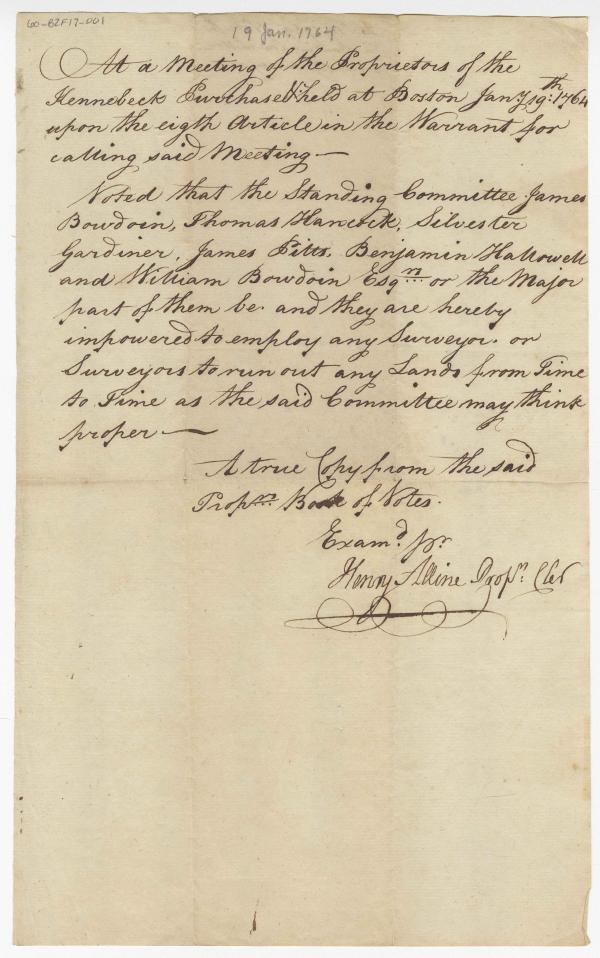 60-B2F17-001
19 Jan. 1764
At a Meeting of the Proprietors of the
Kennebeck Purchase held at Boston Jan.y 19.th 1764
upon the eigth Article in the Warrant for
calling said Meeting —
Voted that the Standing Committee James
Bowdoin, Thomas Hancock, Silvester
Gardiner, James Pitts, Benjamin Hallowell
and William Bowdoin Esq.rs or the Major
part of them be. and they are hereby
impowered to employ any Surveyor. or
Surveyors to run out any Lands from Time
to Time as the said Committee may think
proper —
A true Copy from the said
Prop.rs Book of Votes.
Exam.d pr.
Henry Alline Prop.rs Cler